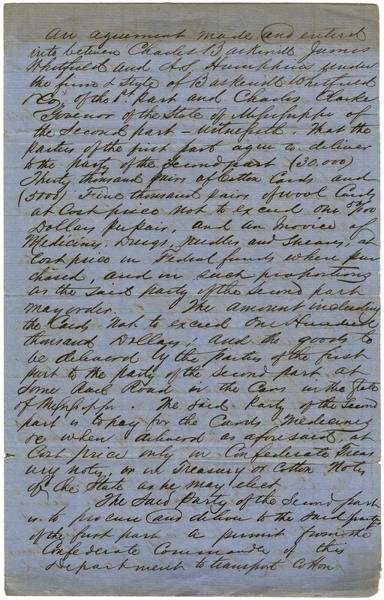 An agreement made and entered
into between Charles Baskervill James
Whitfield and A S Humphries under
the firm & style of Baskervill Whitfield
& Co, of the 1st part and Charles Clarke
Governor of the State of Mississippi of
the Second part — Witnesseth. That the
parties of the first part agree to deliver
to the party of the Second part (30.000)
Thirty thousand pairs of Cotton Cards and
(5000) Five thousand pairs of wool Cards
at Cost price not to exceed one 50/100
Dollars per pair, and an Invoice of
Medicine, Drugs, needles, and Shears, at
Cost price in Federal funds where pur
chased, and in such proportions
as the said party of the Second part
may order. The amount including
the Cards not to exceed One Hundred
thousand Dollars; and the goods to
be delivered by the parties of the first
part to the party of the Second part at
Some Rail Road in the Cars in the State
of Mississippi. The said Party of the Second
part is to pay for the Cards, Medicines
&c when delivered as aforesaid, at
Cost price only in Confederate Treas
ury notes, or in Treasury or Cotton Notes
of the State as he may elect
The Said Party of the Second part
is to procure and deliver to the said party
of the first part a permit from the
Confederate Commander of this
Department to transport Cotton